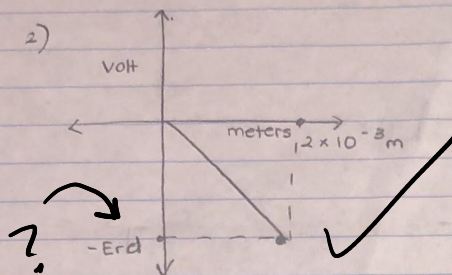 2)
volt
meters 2 x 10⁻³ m
?
-Erd